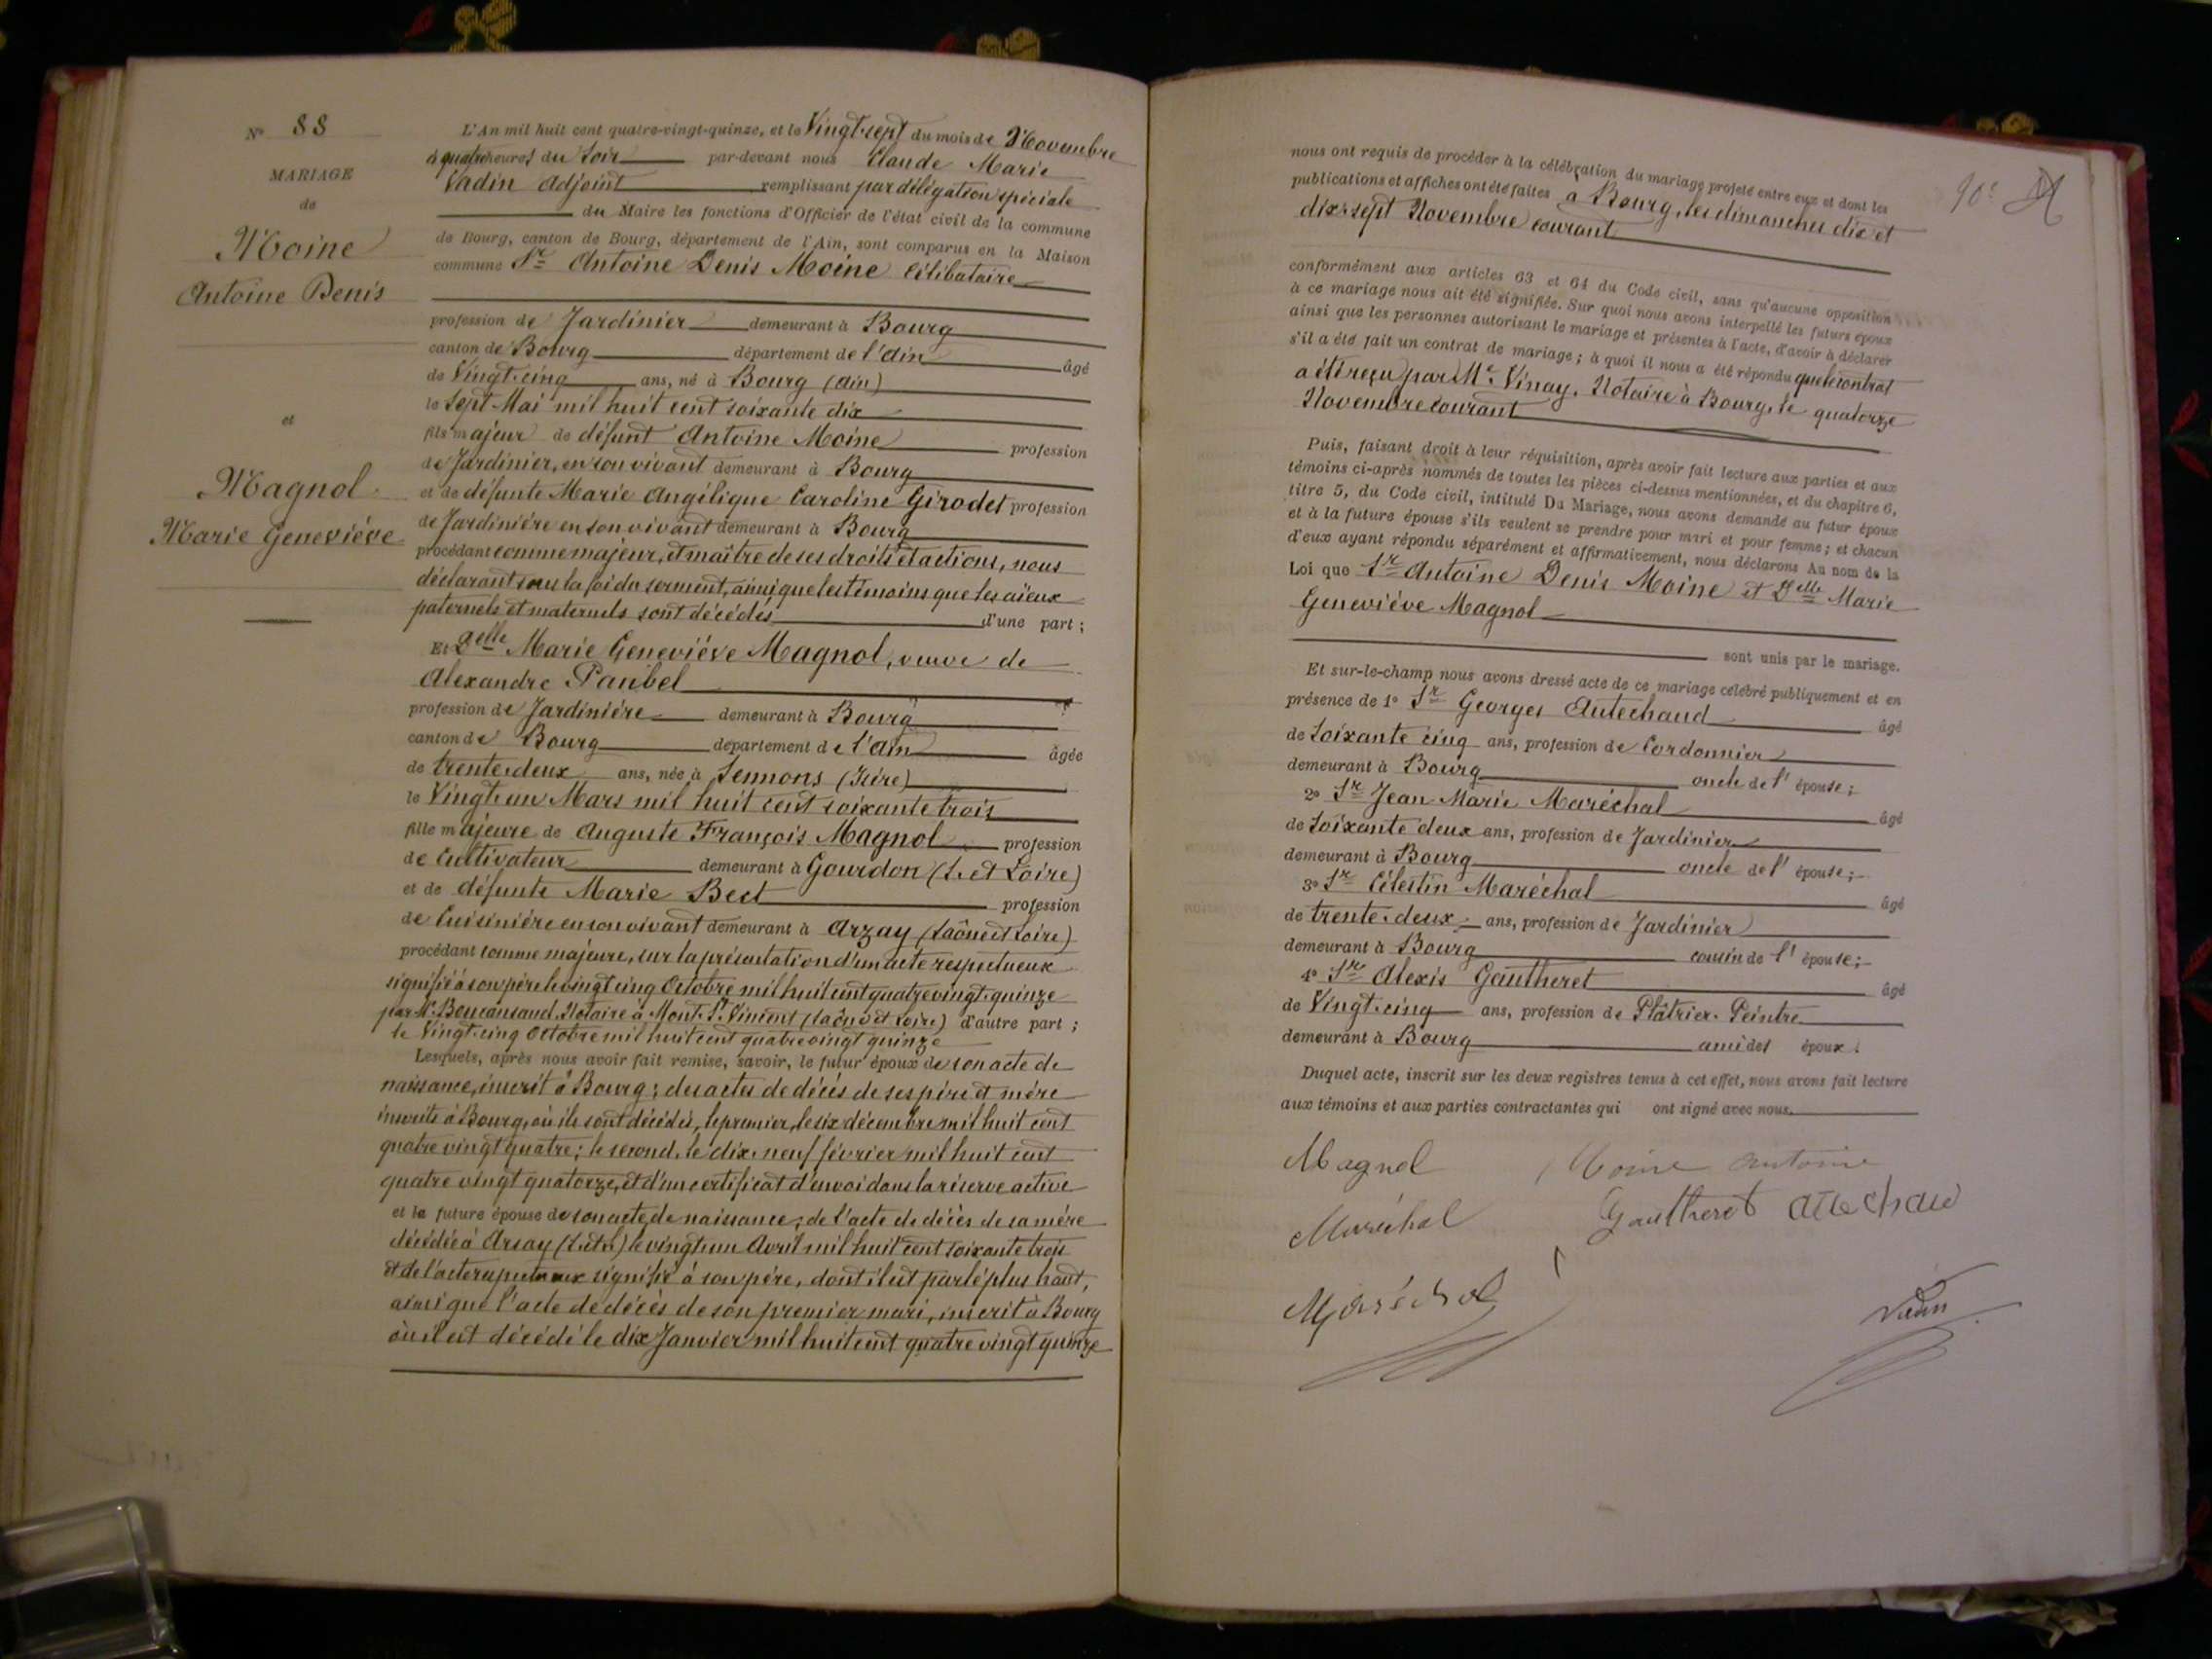 N° 88
MARIAGE
de
Moine
Antoine Denis
et
Magnol
Marie Geneviève
L'An mil huit cent quatre-vingt-quinze, et le Vingt-sept du mois de Novembre
à quatre heures du soir par-devant nous Claude Marie
Vadin Adjoint remplissant par délégation spéciale
du Maire les fonctions d'Officier de l'état civil de la commune
de Bourg, canton de Bourg, département de l'Ain, sont comparus en la Maison
commune Sr Antoine Denis Moine Célibataire
profession de Jardinier demeurant à Bourg
canton de Bourg département de l'Ain âgé
de Vingt-cinq ans, né à Bourg (Ain)
le Sept Mai mil huit cent soixante dix
fils majeur de défunt Antoine Moine profession
de Jardinier, en son vivant demeurant à Bourg
et de défunte Marie Angélique Caroline Girodet profession
de Jardinière en son vivant demeurant à Bourg
procédant comme majeur, et maître de ses droits et actions, nous
déclarant sous la foi du serment, ainsi que les témoins que les aïeux
paternels et maternels sont décédés d'une part ;
Et Delle Marie Geneviève Magnol, veuve de
Alexandre Paubel
profession de Jardinière demeurant à Bourg
canton de Bourg département de l'Ain âgée
de trente-deux ans, née à Sermons (Isère)
le Vingt-un Mars mil huit cent soixante trois
fille majeure de Auguste François Magnol profession
de Cultivateur demeurant à Gourdon (S. et Loire)
et de défunte Marie Bect profession
de Cuisinière en son vivant demeurant à Arzay (Saône et Loire)
procédant comme majeure, sur la présentation d'un acte respectueux
signifié à son père le vingt cinq Octobre mil huit cent quatre vingt-quinze
par Me Boucansaud, Notaire à Mont-St-Vincent (Saône et Loire) d'autre part ;
le Vingt-cinq Octobre mil huit cent quatre vingt quinze
Lesquels, après nous avoir fait remise, savoir, le futur époux de son acte de
naissance, inscrit à Bourg ; des actes de décès de ses père et mère
inscrits à Bourg, où ils sont décédés, le premier, le six décembre mil huit cent
quatre vingt quatre ; le second, le dix-neuf février mil huit cent
quatre vingt quatorze, et d'un certificat d'envoi dans la réserve active
et la future épouse de son acte de naissance ; de l'acte de décès de sa mère
décédée à Arsay le vingt-un Avril mil huit cent soixante trois
et de l'acte respectueux signifié à son père, dont il est parlé plus haut,
ainsi que l'acte de décès de son premier mari, inscrit à Bourg
où il est décédé le dix Janvier mil huit cent quatre vingt quinze
90e
nous ont requis de procéder à la célébration du mariage projeté entre eux et dont les
publications et affiches ont été faites à Bourg, les dimanches dix et
dix-sept Novembre courant
conformément aux articles 63 et 64 du Code civil, sans qu'aucune opposition
à ce mariage nous ait été signifiée. Sur quoi nous avons interpellé les futurs époux
ainsi que les personnes autorisant le mariage et présentes à l'acte, d'avoir à déclarer
s'il a été fait un contrat de mariage ; à quoi il nous a été répondu que le contrat
a été reçu par Me Vinay, Notaire à Bourg, le quatorze
Novembre courant
Puis, faisant droit à leur réquisition, après avoir fait lecture aux parties et aux
témoins ci-après nommés de toutes les pièces ci-dessus mentionnées, et du chapitre 6,
titre 5, du Code civil, intitulé Du Mariage, nous avons demandé au futur époux
et à la future épouse s'ils veulent se prendre pour mari et pour femme ; et chacun
d'eux ayant répondu séparément et affirmativement, nous déclarons Au nom de la
Loi que Sr Antoine Denis Moine et Delle Marie
Geneviève Magnol
sont unis par le mariage.
Et sur-le-champ nous avons dressé acte de ce mariage célébré publiquement et en
présence de 1° Sr Georges Autechaud âgé
de Soixante cinq ans, profession de Cordonnier
demeurant à Bourg oncle de l' épouse ;
2° Sr Jean Marie Maréchal âgé
de Soixante deux ans, profession de Jardinier
demeurant à Bourg oncle de l' épouse ;
3° Sr Célestin Maréchal âgé
de trente-deux ans, profession de Jardinier
demeurant à Bourg cousin de l' épouse ;
4° Sr Alexis Gautheret âgé
de Vingt-cinq ans, profession de Plâtrier-Peintre
demeurant à Bourg ami des époux.
Duquel acte, inscrit sur les deux registres tenus à cet effet, nous avons fait lecture
aux témoins et aux parties contractantes qui ont signé avec nous.
Magnol Moine Antoine
Maréchal Gautheret Attechau
Maréchal Vadin